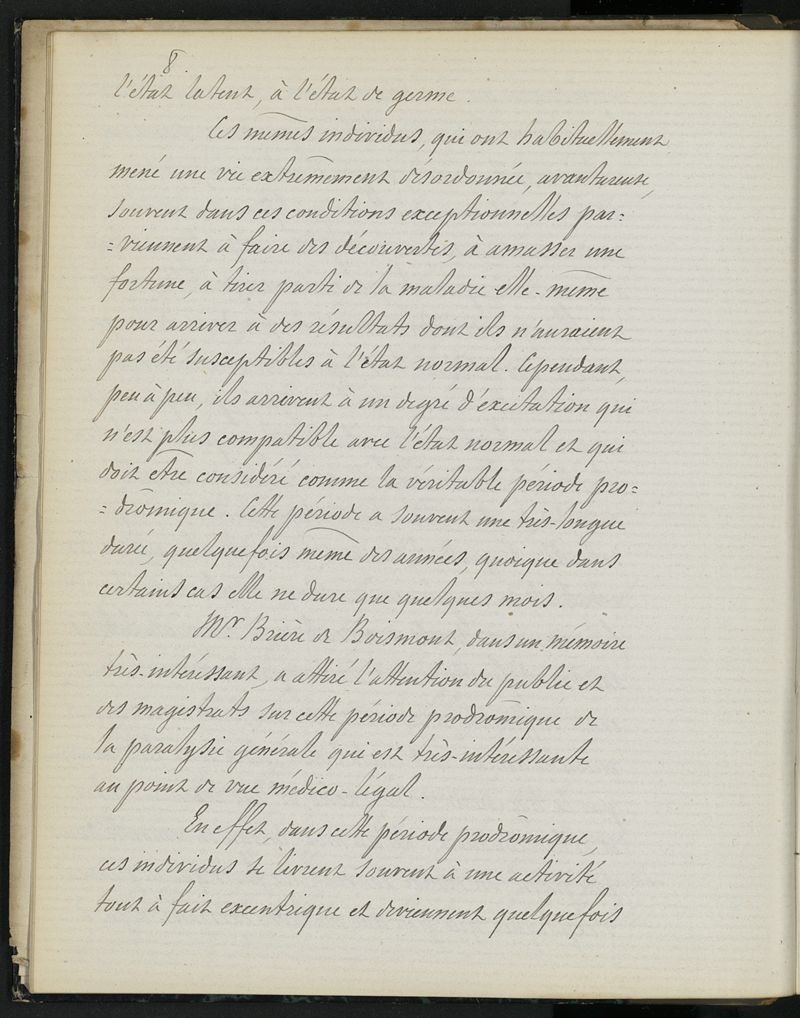 8
l'état latent, à l'état de germe.
Ces mêmes individus, qui ont habituellement
mené une vie extrêmement désordonnée, avantureuse,
souvent dans ces conditions exceptionnelles par=
=viennent à faire des découvertes, à amasser une
fortune, à tirer parti de la maladie elle-même
pour arriver à des résultats dont ils n'auraient
pas été susceptibles à l'état normal. Cependant,
peu à peu, ils arrivent à un degré d'excitation qui
n'est plus compatible avec l'état normal et qui
doit être considéré comme la véritable période pro=
=drômique. Cette période a souvent une très-longue
durée, quelquefois même des années, quoique dans
certains cas elle ne dure que quelques mois.
Mr. Brière de Boismont, dans un mémoire
très-intéressant, a attiré l'attention du public et
des magistrats sur cette période prodrômique de
la paralysie générale qui est très-intéressante
au point de vue médico-légal.
En effet, dans cette période prodrômique,
ces individus se livrent souvent à une activité
tout à fait excentrique et deviennent quelquefois